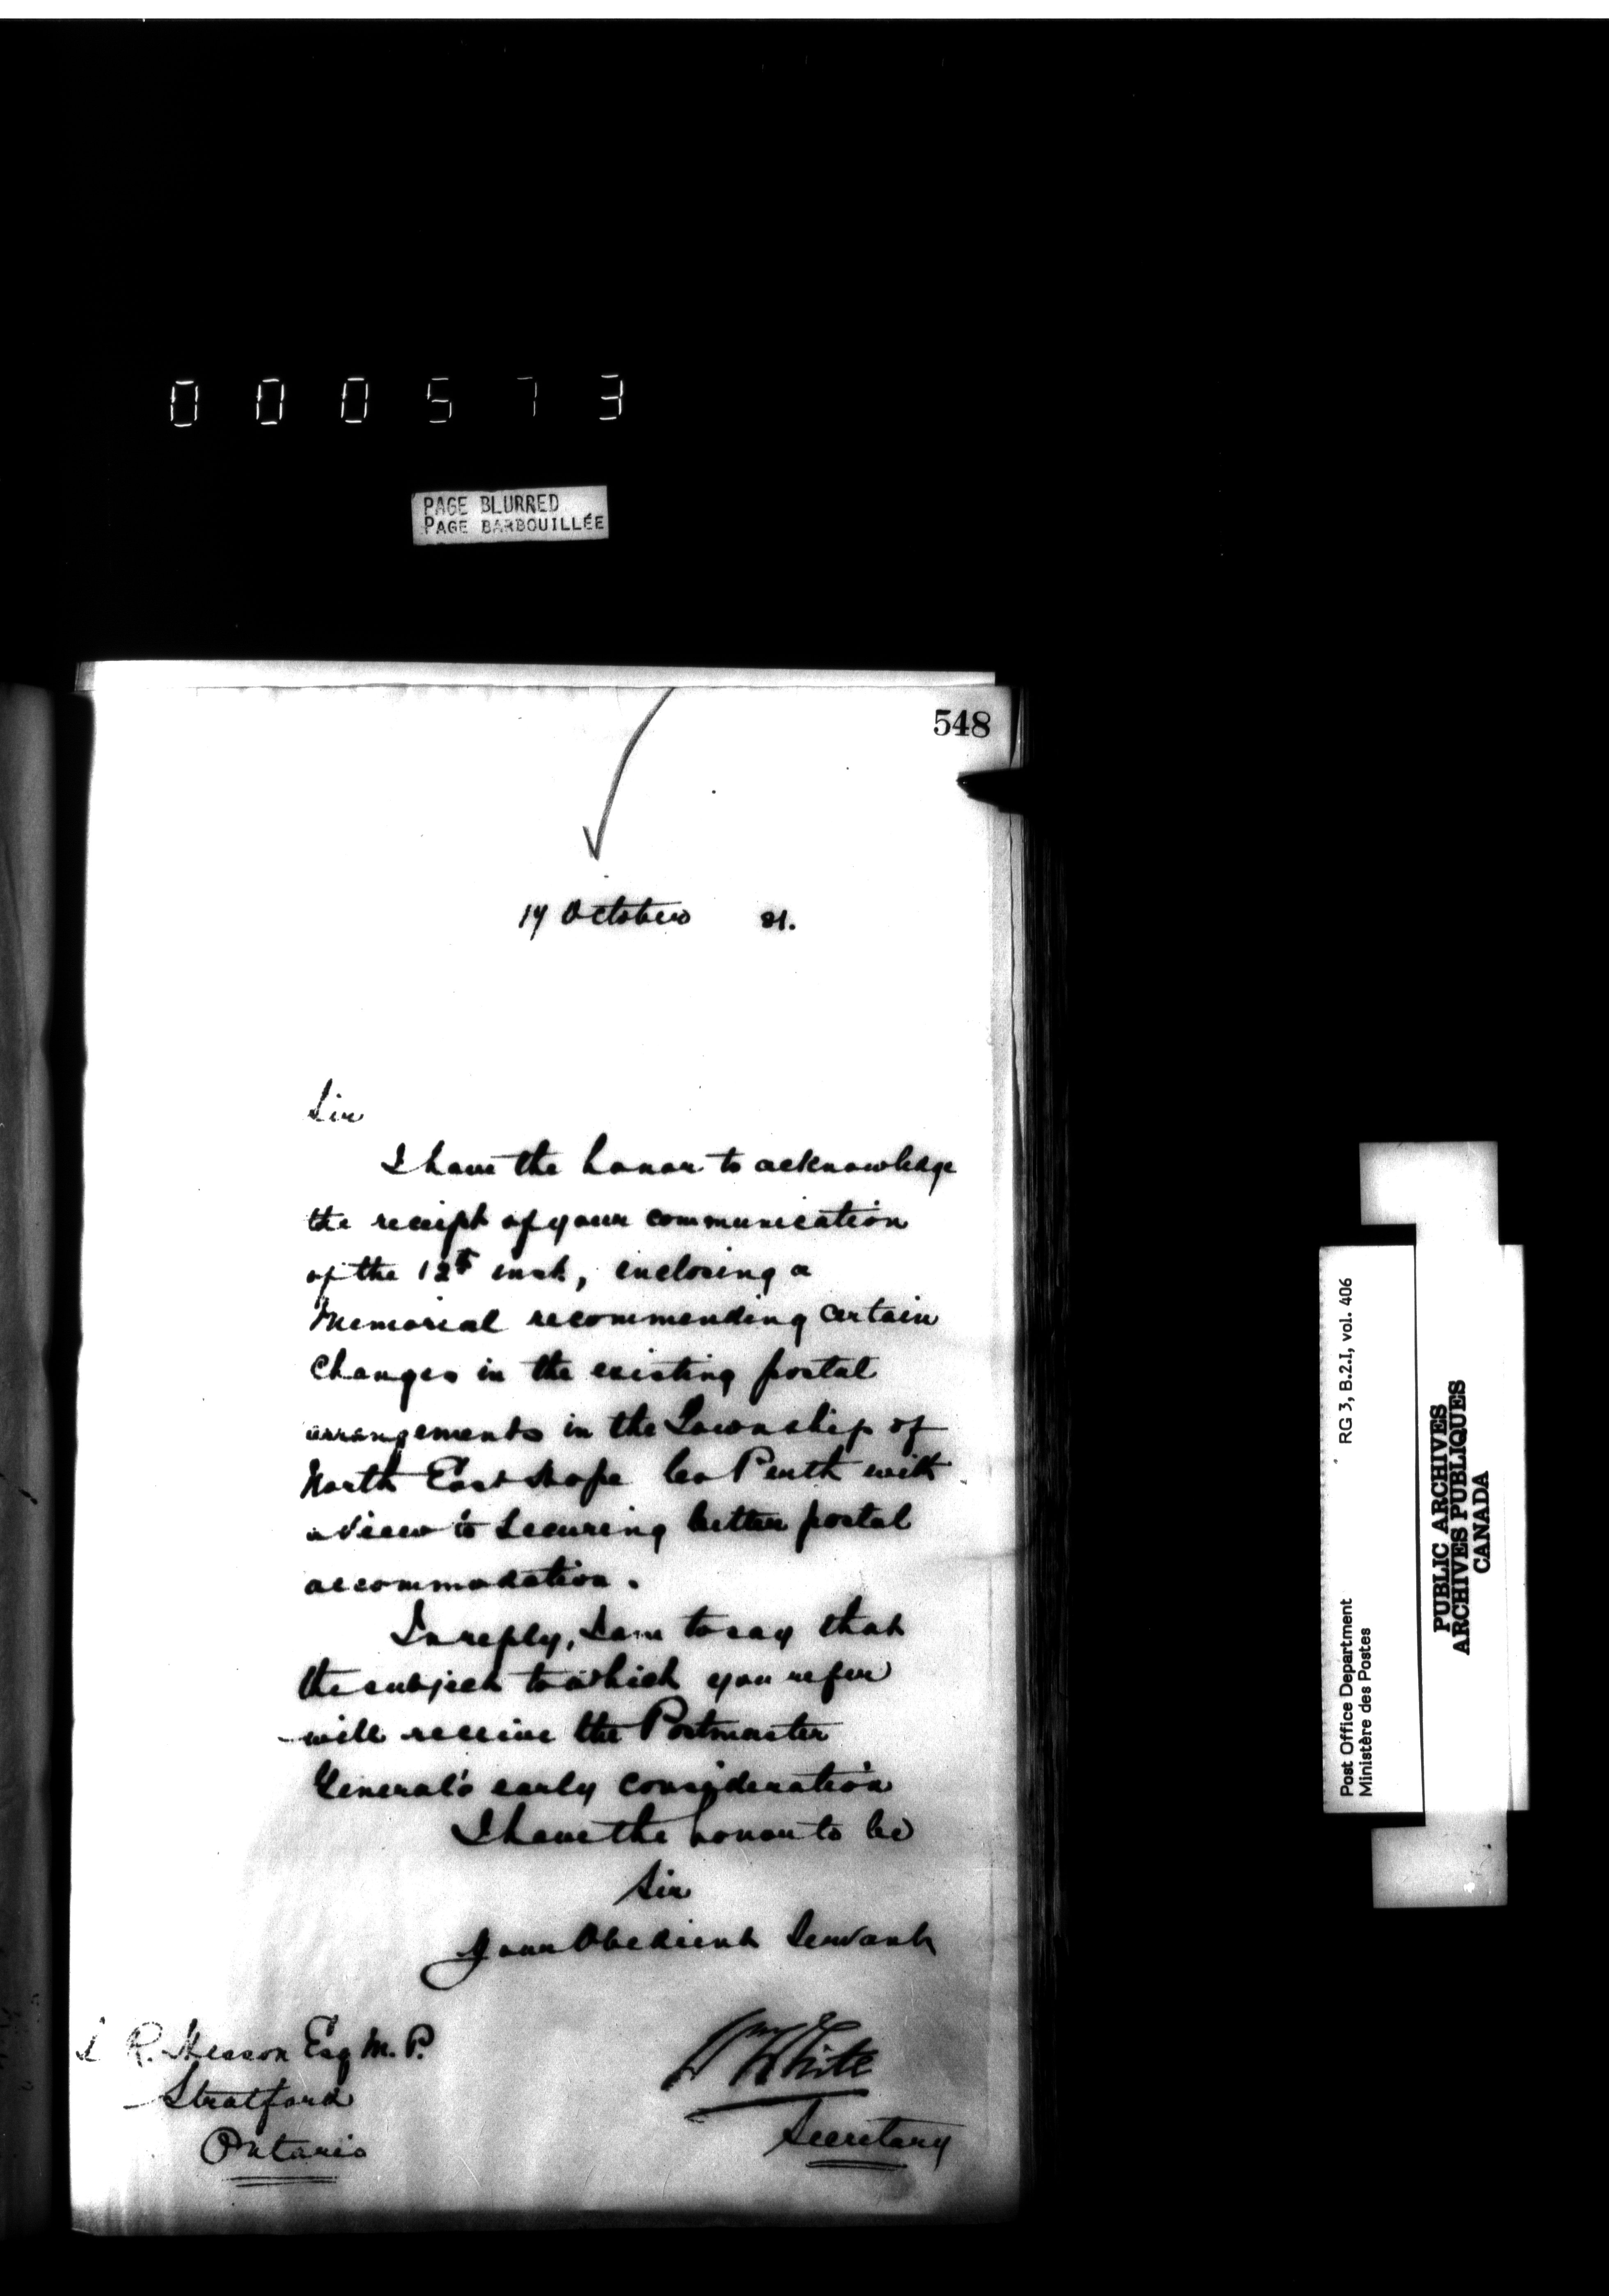 000573
PAGE BLURRED
PAGE BARBOUILLÉE
548
October 81.
Sir
I have the honor to acknowledge
the receipt of your communication
of the 12th inst, enclosing a
Memorial recommending certain
Changes in the existing postal
arrangements in the Township of
North East Hope Co Perth with
a View to Securing better postal
accommodation.
In reply, I am to say that
the subject to which you refer
will receive the Postmaster
General's early consideration
I have the honor to be
Sir
Your Obedient Servant
R. Hesson Esq M. P.
Stratford
Ontario
Wm White
Secretary
Post Office Department
Ministère des Postes
RG 3, B.2.I, vol. 406
PUBLIC ARCHIVES
ARCHIVES PUBLIQUES
CANADA